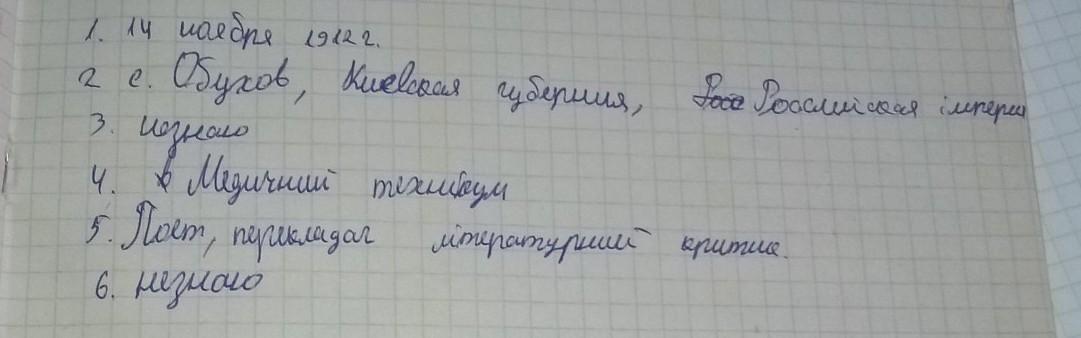 1. 14 ноября 1912 г.
2 с. Обухов, Киевская губерния, Российская імперия
3. незнаю
4. в Медичний технікум
5. Поет, перекладач літературний критик.
6. незнаю